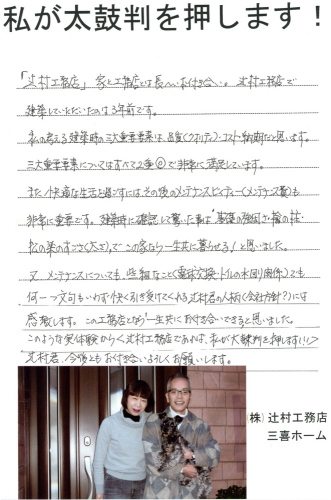 私が太鼓判を押します！
「辻村工務店」家と工務店とは長〜いお付き合い。辻村工務店で
建築していただいたのは3年前です。
私の考える建築時の三大重要要素は、品質(クオリティ)・コスト・納期だと思います。
三大重要要素についてはすべて2重◎で非常に満足しています。
また、快適な生活を過ごすには、その後のメンテナンス
非常に重要です。建築時に確認して驚いた事は"基礎の強固さ・檜の柱・
松の梁のすごさ(太さ)"で この家なら一生共に暮らせる！と思いました。
又、メンテナンスについても、些細なこと(電球交換・トイレの水回り関係)でも
何一つ文句もいわず快く引き受けてくれる辻村君の人柄(会社方針？)には
感激します。この工務店となら一生共にお付き合いできると思いました。
このような実体験から＜辻村工務店であれば、私が太鼓判を押します!!＞
辻村君、今後ともお付き合いよろしくお願いします。
(株)辻村工務店
三喜ホーム